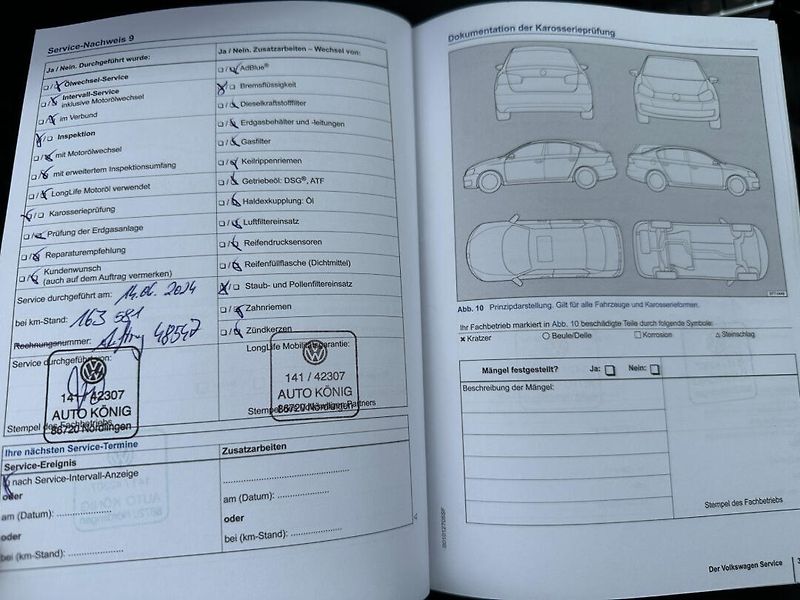 Service-Nachweis 9
Ja / Nein. Durchgeführt wurde:
Ölwechsel-Service
Intervall-Service
inklusive Motorölwechsel
im Verbund
Inspektion
mit Motorölwechsel
mit erweitertem Inspektionsumfang
LongLife Motoröl verwendet
Karosserieprüfung
Prüfung der Erdgasanlage
Reparaturempfehlung
Kundenwunsch
(auch auf dem Auftrag vermerken)
Service durchgeführt am: 14.06.2024
bei km-Stand: 163 581
Rechnungsnummer: 48542
Service durchgeführt von:
141 / 42307
AUTO KÖNIG
86720 Nördlingen
Stempel des Fachbetriebs
Ja / Nein. Zusatzarbeiten – Wechsel von:
AdBlue®
Bremsflüssigkeit
Dieselkraftstofffilter
Erdgasbehälter und -leitungen
Gasfilter
Keilrippenriemen
Getriebeöl: DSG®, ATF
Haldexkupplung: Öl
Luftfiltereinsatz
Reifendrucksensoren
Reifenfüllflasche (Dichtmittel)
Staub- und Pollenfiltereinsatz
Zahnriemen
Zündkerzen
LongLife Mobilitätsgarantie:
141 / 42307
AUTO KÖNIG
86720 Nördlingen
Stempel des Partners
Ihre nächsten Service-Termine
Service-Ereignis
nach Service-Intervall-Anzeige
oder
am (Datum):
oder
bei (km-Stand):
Zusatzarbeiten
am (Datum):
oder
bei (km-Stand):
Dokumentation der Karosserieprüfung
Abb. 10 Prinzipdarstellung. Gilt für alle Fahrzeuge und Karosserieformen.
Ihr Fachbetrieb markiert in Abb. 10 beschädigte Teile durch folgende Symbole:
x Kratzer
Beule/Delle
Korrosion
Steinschlag
Mängel festgestellt? Ja: Nein:
Beschreibung der Mängel:
Stempel des Fachbetriebs
Der Volkswagen Service